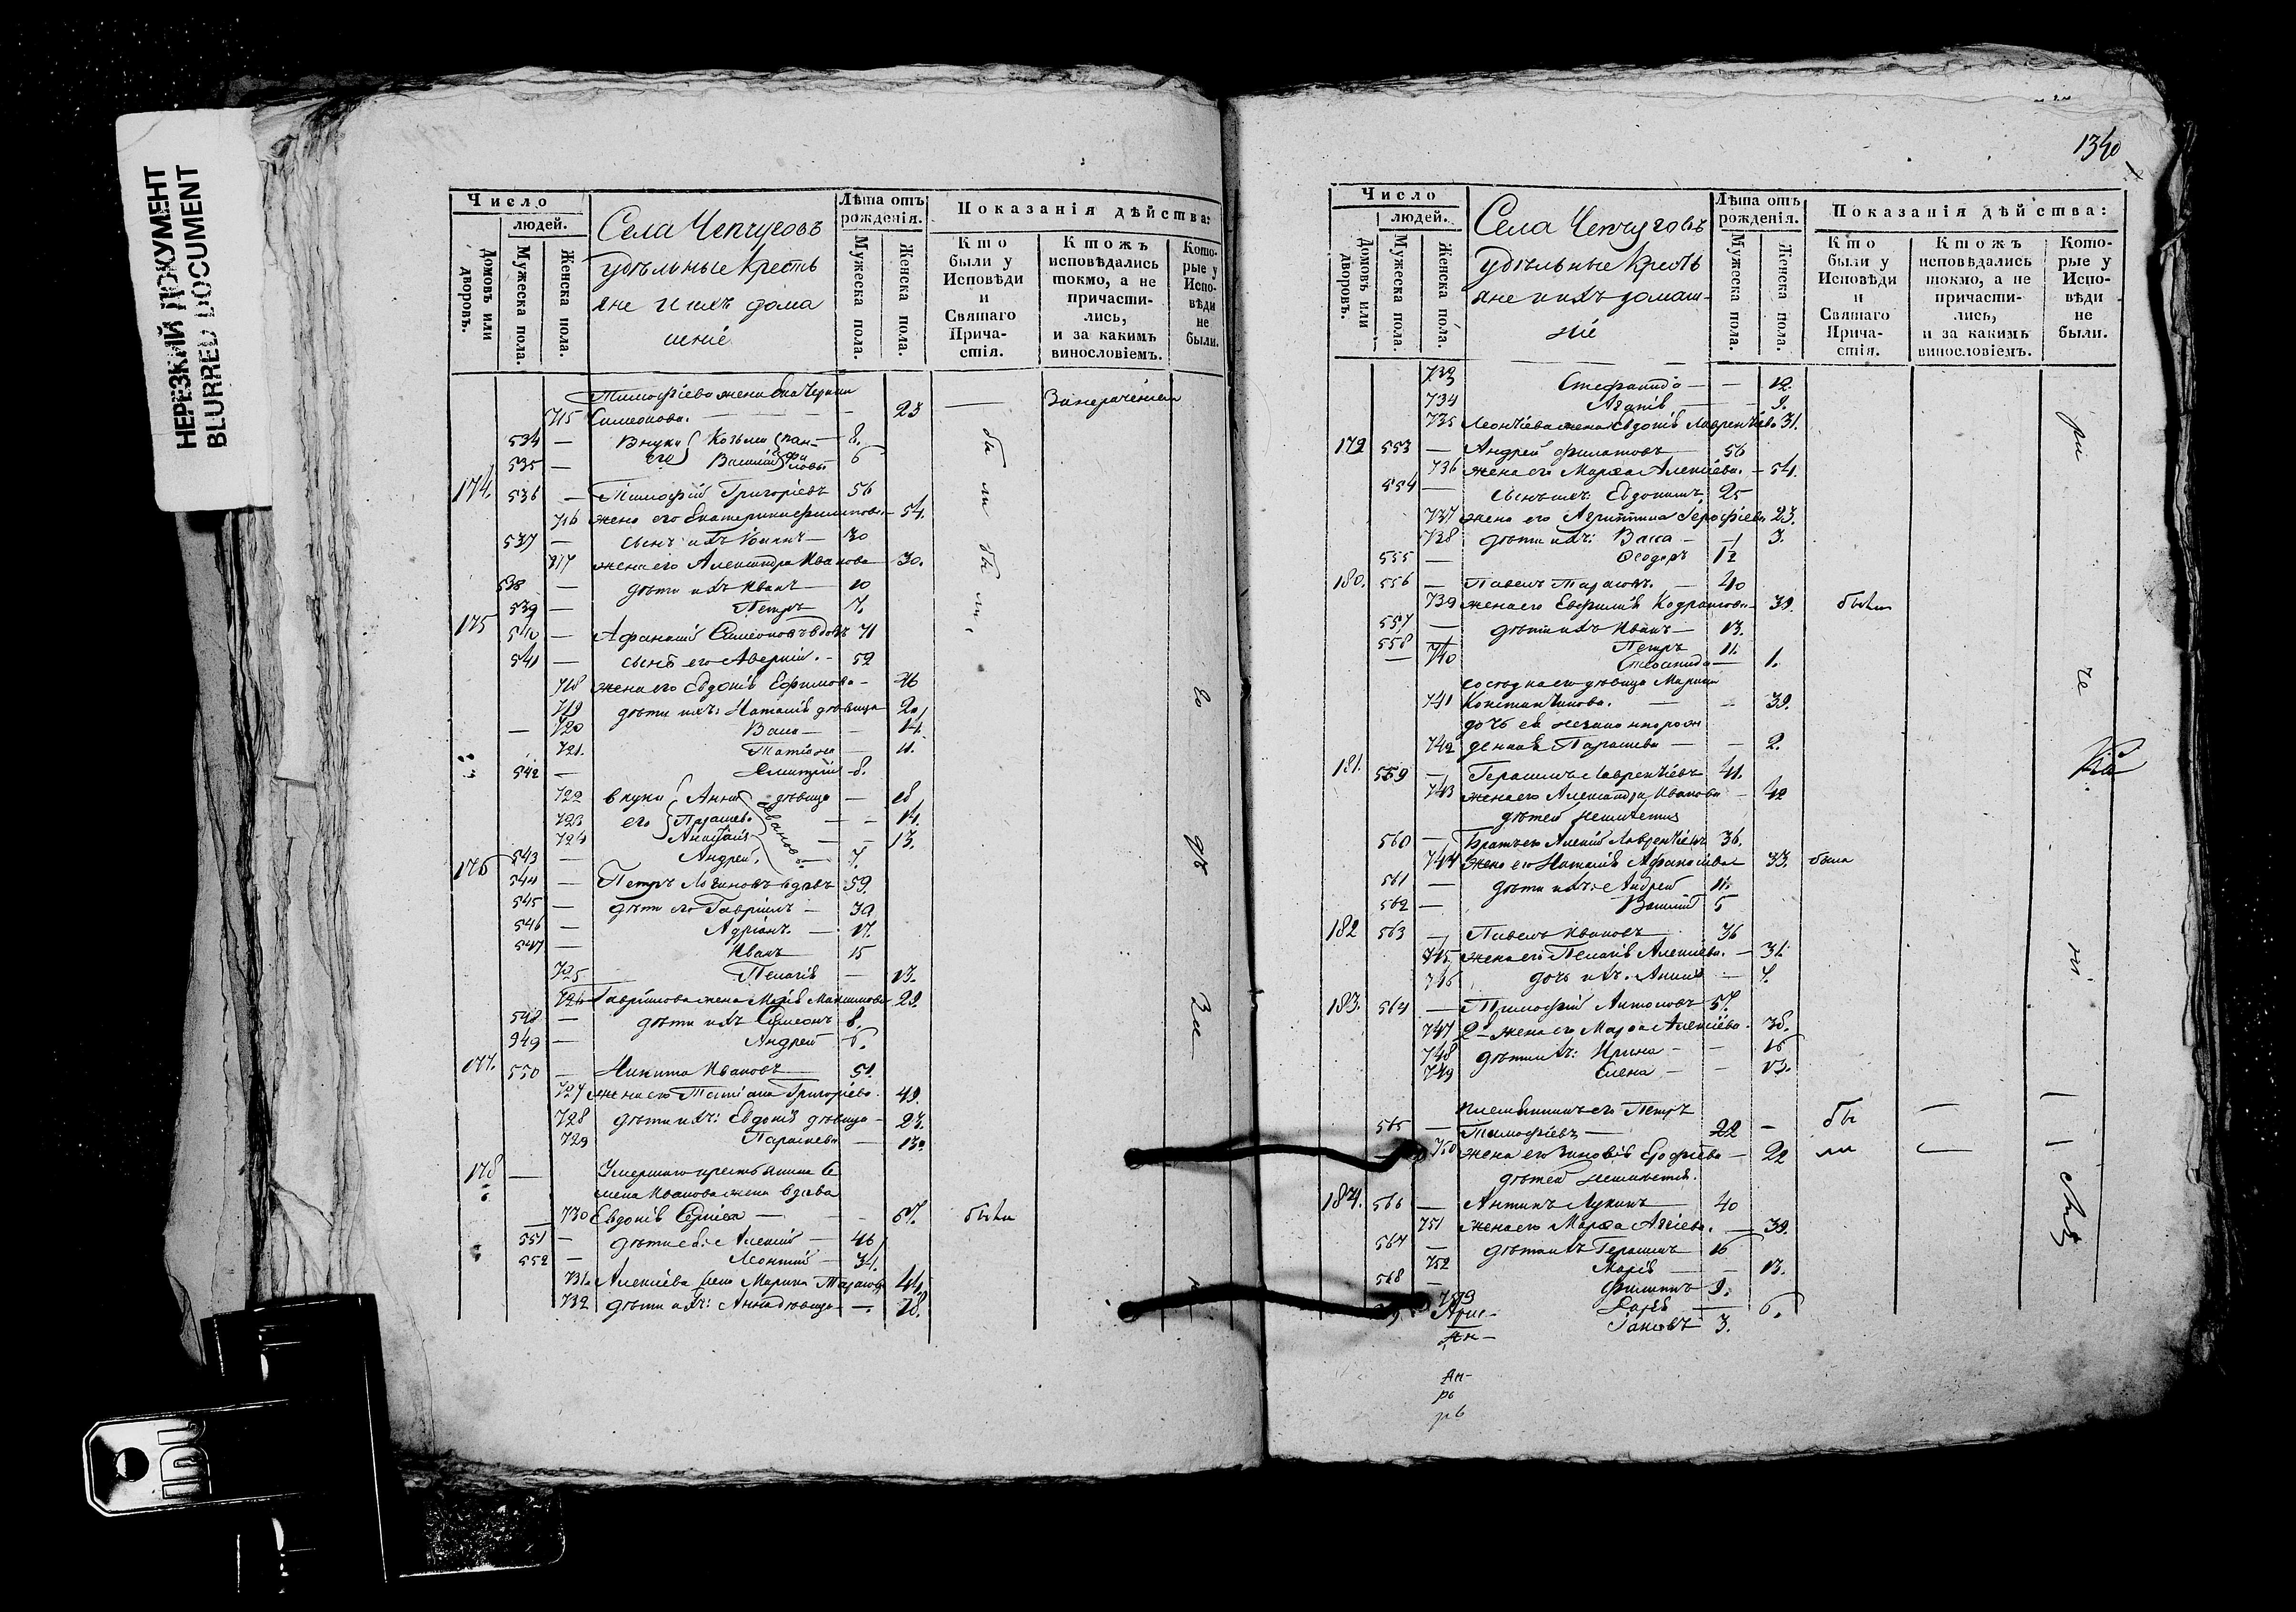 НЕРЕЗКИЙ ДОКУМЕНТ
BLURRED DOCUMENT
Число
людей.
Домовъ или дворовъ.
Мужеска пола.
Женска пола.
Села Чепчуговъ
удѣльные кресть
яне и ихъ дома
шніе
Лѣта отъ рожденія.
Мужеска пола.
Женска пола.
Показанія дѣйства:
Кто были у Исповѣди и Святаго Прича-стія.
Ктожъ исповѣдались токмо, а не причасти-лись, и за какимъ винословіемъ.
Кото-рые у Испо-вѣди не были.
Тимофіева жена
715 Симеонова. — 23 —
534 — Внуки Козьма 8.
535 — его Василій 6
174. 536 — Тимофій Григоріевъ 56
716 жена его Екатерина Филипова — 54.
537 — сынъ ихъ — 30
717 жена его Александра Иванова 30.
538 — дѣти ихъ Иванъ — 10
539 — Петръ — 7.
175 540 — Афанасій Симеоновъ вдовъ 71
541 — сынъ его Аверкій. — 52
718 жена его Евдокія Ефимова — 46
719 дѣти ихъ: Наталія дѣвица 20
— 720 Васса — — 14.
721. Татіана — 11.
542 — Дмитрій 8.
722 внуки Анна дѣвица — 18
723 его Парасьева — — 14.
724 Анастасія — — 13.
543 — Андрей. — 7.
176 544 — Петръ Логиновъ вдовъ 59.
545 — дѣти его Гавріилъ — 30
546 — Адріанъ. — 17.
547 — Иванъ 15
725 Пелагія — 13.
726 Гавріилова жена Марія Максимова 29.
548 — дѣти ихъ Симеонъ 8.
549 — Андрей 6.
177. 550 — Никита Ивановъ — 51.
727 жена его Татіана Григоріева. 49.
728 дѣти ихъ: Евдокія дѣвица — 23.
729 Парасьева — 13.
178 — Умершаго крестьянина Се
мена Иванова жена вдова
730 Евдокія — — 67. были
551 — дѣти ея: Алексій — 46
552 — Леонтій — 34.
731 Алексіева жена Марина Тарасова 44.
732 дѣти ихъ: Анна дѣвица — 18.
бы ли бы ли.
1340
Число
людей.
Домовъ или дворовъ.
Мужеска пола.
Женска пола.
Села Чепчуговъ
удѣльные кресть
яне и ихъ домаш-
ніе
Лѣта отъ рожденія.
Мужеска пола.
Женска пола.
Показанія дѣйства:
Кто были у Исповѣди и Святаго Прича-стія.
Ктожъ исповѣдались токмо, а не причасти-лись, и за какимъ винословіемъ.
Кото-рые у Испо-вѣди не были.
733 Стефанида — — 12.
734 Агапія — — 9.
735 Леонтіева жена Евдокія Лаврентіева 31.
179 553 — Андрей Филатовъ 56
736 жена его Марѳа Алексіева. — 54.
554 — сынъ ихъ Евдокимъ 25
737 жена его Агриппина Іерофіева 23.
738 дѣти ихъ: Васса — 3.
555 — Ѳеодоръ 1/2
180. 556 — Павелъ Тарасовъ. — 40
739 жена его Евфимія Кодратова — 39. были
557 — дѣти ихъ Иванъ — 13.
558 — Петръ 11.
— 740 — 1.
сосѣдка его дѣвица Марина
741 Константинова. — — 39.
дочь ея незаконнорож
742 денная Парасьева — — 2.
181. 559 — Герасимъ Лаврентіевъ 41.
743 жена его Александра Иванова — 42
дѣтей неимѣетъ
560 — Братъ его Алексій Лаврентіевъ 36.
744 Жена его Наталія Афанасіева 33. была
561 — дѣти ихъ: Андрей 11.
562 — Василій 5
182 563 — Павелъ Ивановъ 36
745 жена его Пелагія Алексіева. — 31.
746 дочь ихъ. Анна — 7.
183. 564 — Тимофій Антоновъ 57.
747 2я жена его Марѳа Алексіева. 38.
748 дѣти ихъ: Ирина — — 16
749 Елена — — 13.
племянникъ его Петръ
565 — Тимофіевъ — 22 — бы —
750 жена его Зиновія Ерофіева — 22 ли —
дѣтей неимѣетъ.
184. 566 — Антипъ Лукинъ — 40
751 жена его Марѳа — 39.
567 — дѣти ихъ Герасимъ 16
752 Марія — — 13.
568 — Филиппъ 9.
753 Дарья — 6.
Іаковъ 3.